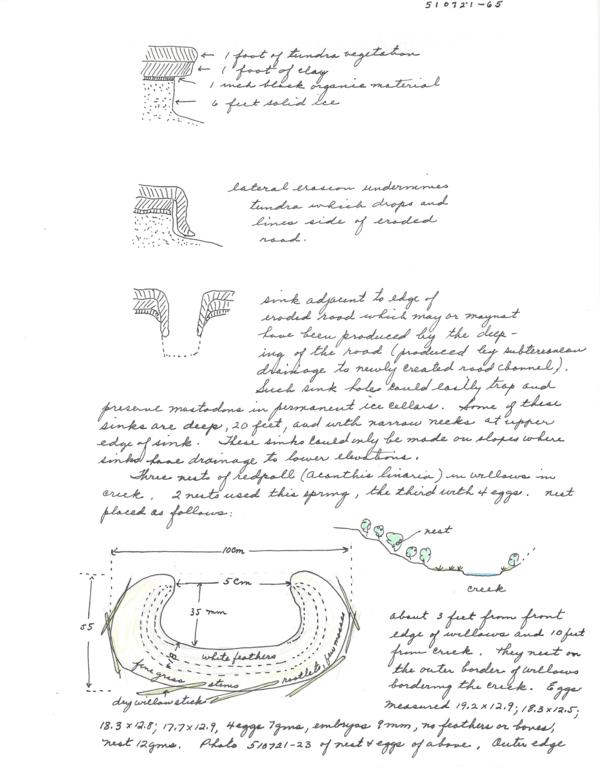 510721-65
1 foot of tundra vegetation
1 foot of clay
1 inch black organic material
6 feet solid ice
lateral erosion undermines
tundra which drops and
lines side of eroded
road.
sink adjacent to edge of
eroded road which may or maynot
have been produced by the deep-
ing of the road (produced by subterenean
drainage to newly created road channel).
Such sink holes could easily trap and
preserve mastodons in permanent ice cellars. Some of these
sinks are deep, 20 feet, and with narrow necks at upper
edge of sink. These sinks could only be made on slopes where
sinks have drainage to lower elevations.
Three nests of redpoll (Acanthis linaria) in willows in
creek. 2 nests used this spring, the third with 4 eggs. nest
placed as follows:
nest
creek
10cm
5 cm
35 mm
55
8
white feathers
fine grass stems rootlets, few mosses
dry willow sticks
about 3 feet from front
edge of willows and 10 feet
from creek. They nest on
the outer border of willows
bordering the creek. Eggs
measured 19.2x12.9; 18.3x12.5;
18.3x12.8; 17.7x12.9, 4 eggs 7gms, embryos 9mm, no feathers or bones,
nest 12gms. Photo 510721-23 of nest & eggs of above. Outer edge